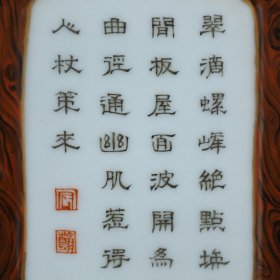 翠滴螺峰絶點埃
間板屋面波開爲
曲徑通幽惹得
心杖策來